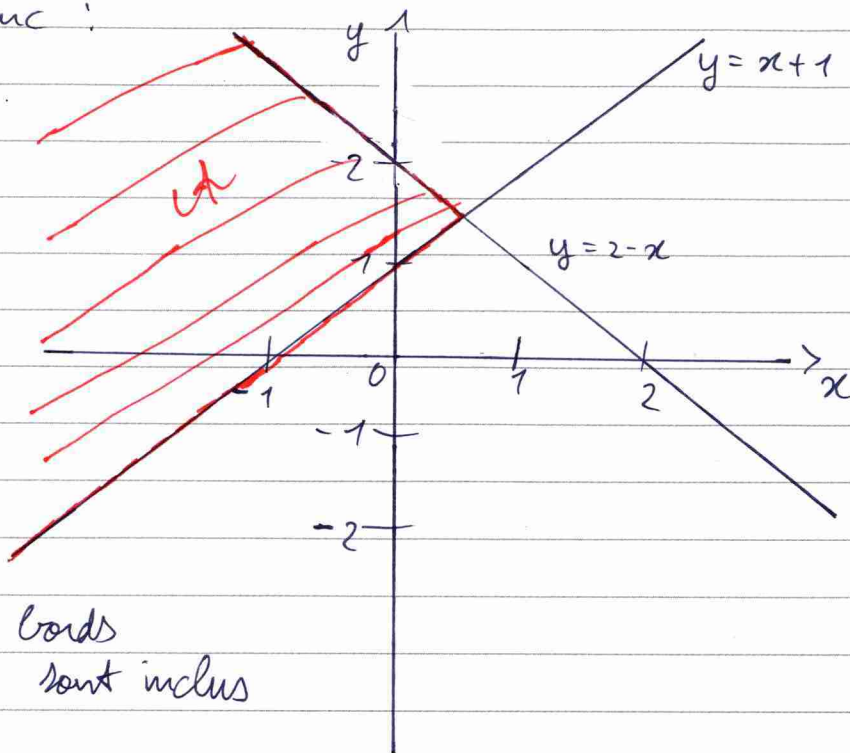 uc :
y 1
y = x + 1
2
A
y = 2 - x
1
-1 0 1 2 x
-1
-2
bords
sont inclus